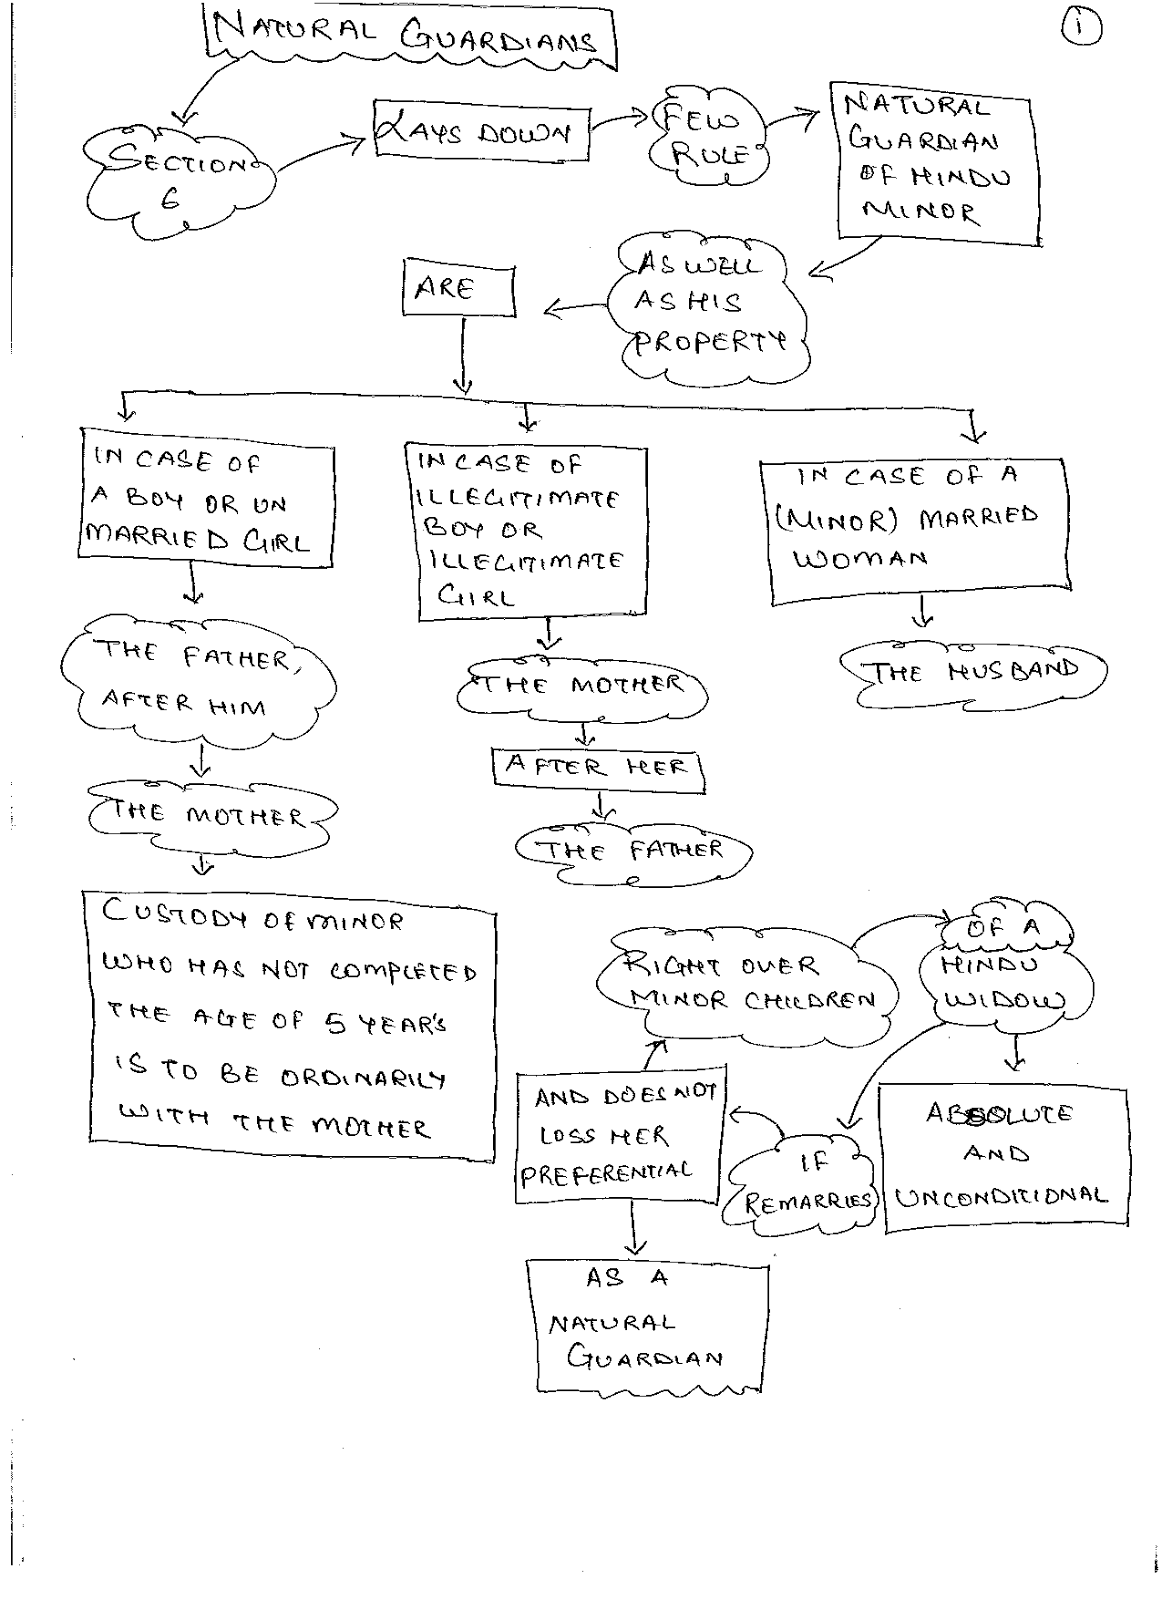 NATURAL GUARDIANS
1
SECTION
6
LAYS DOWN
FEW
RULE
NATURAL
GUARDIAN
OF HINDU
MINOR
AS WELL
AS HIS
PROPERTY
ARE
IN CASE OF
A BOY OR UN
MARRIED GIRL
THE FATHER,
AFTER HIM
THE MOTHER
CUSTODY OF MINOR
WHO HAS NOT COMPLETED
THE AGE OF 5 YEAR'S
IS TO BE ORDINARILY
WITH THE MOTHER
IN CASE OF
ILLEGITIMATE
BOY OR
ILLEGITIMATE
GIRL
THE MOTHER
AFTER HER
THE FATHER
IN CASE OF A
(MINOR) MARRIED
WOMAN
THE HUSBAND
OF A
HINDU
WIDOW
ABSOLUTE
AND
UNCONDITIONAL
IF
REMARRIES
AND DOES NOT
LOSS HER
PREFERENTIAL
RIGHT OVER
MINOR CHILDREN
AS A
NATURAL
GUARDIAN